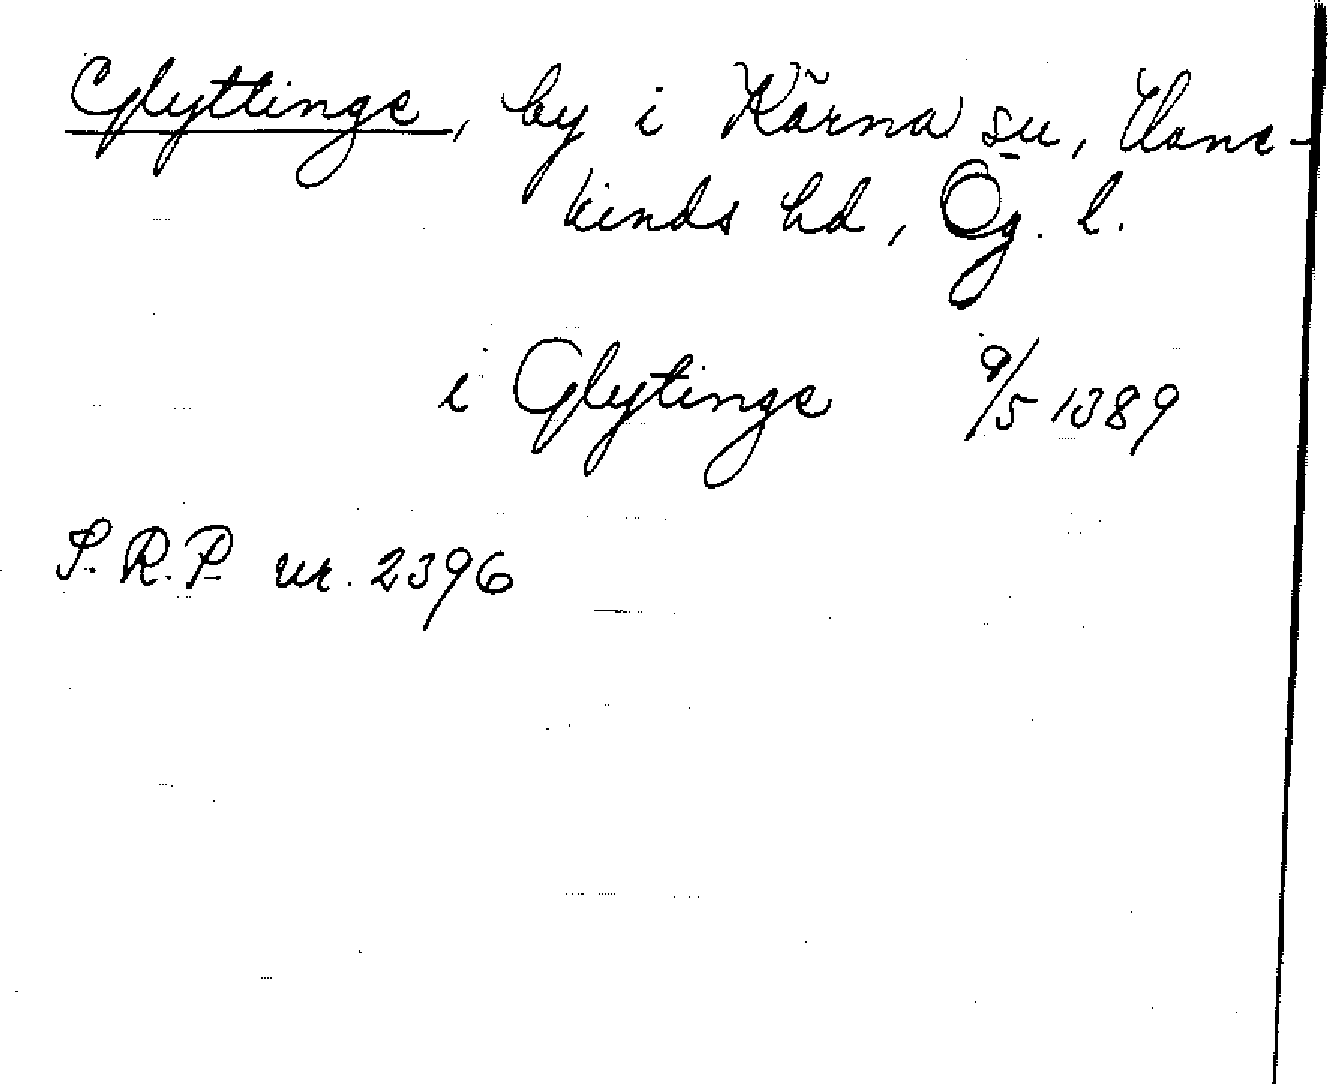 Glyttinge, by i Kärna sn, Hane-
kinds hd, Ög. l.
i Glytinge 9/5 1389
S.R.P. nr. 2396